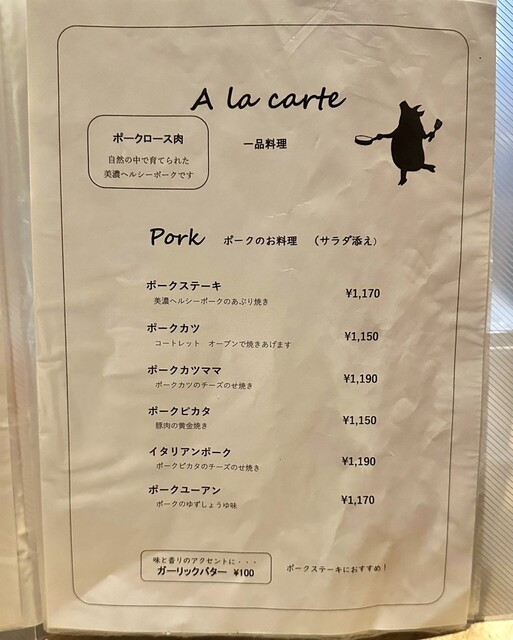 A la carte
ポークロース肉
自然の中で育てられた
美濃ヘルシーポークです
一品料理
Pork ポークのお料理 （サラダ添え）
ポークステーキ ¥1,170
美濃ヘルシーポークのあぶり焼き
ポークカツ ¥1,150
コートレット オーブンで焼きあげます
ポークカツママ ¥1,190
ポークカツのチーズのせ焼き
ポークピカタ ¥1,150
豚肉の黄金焼き
イタリアンポーク ¥1,190
ポークピカタのチーズのせ焼き
ポークユーアン ¥1,170
ポークのゆずしょうゆ味
味と香りのアクセントに・・・
ガーリックバター ¥100
ポークステーキにおすすめ！